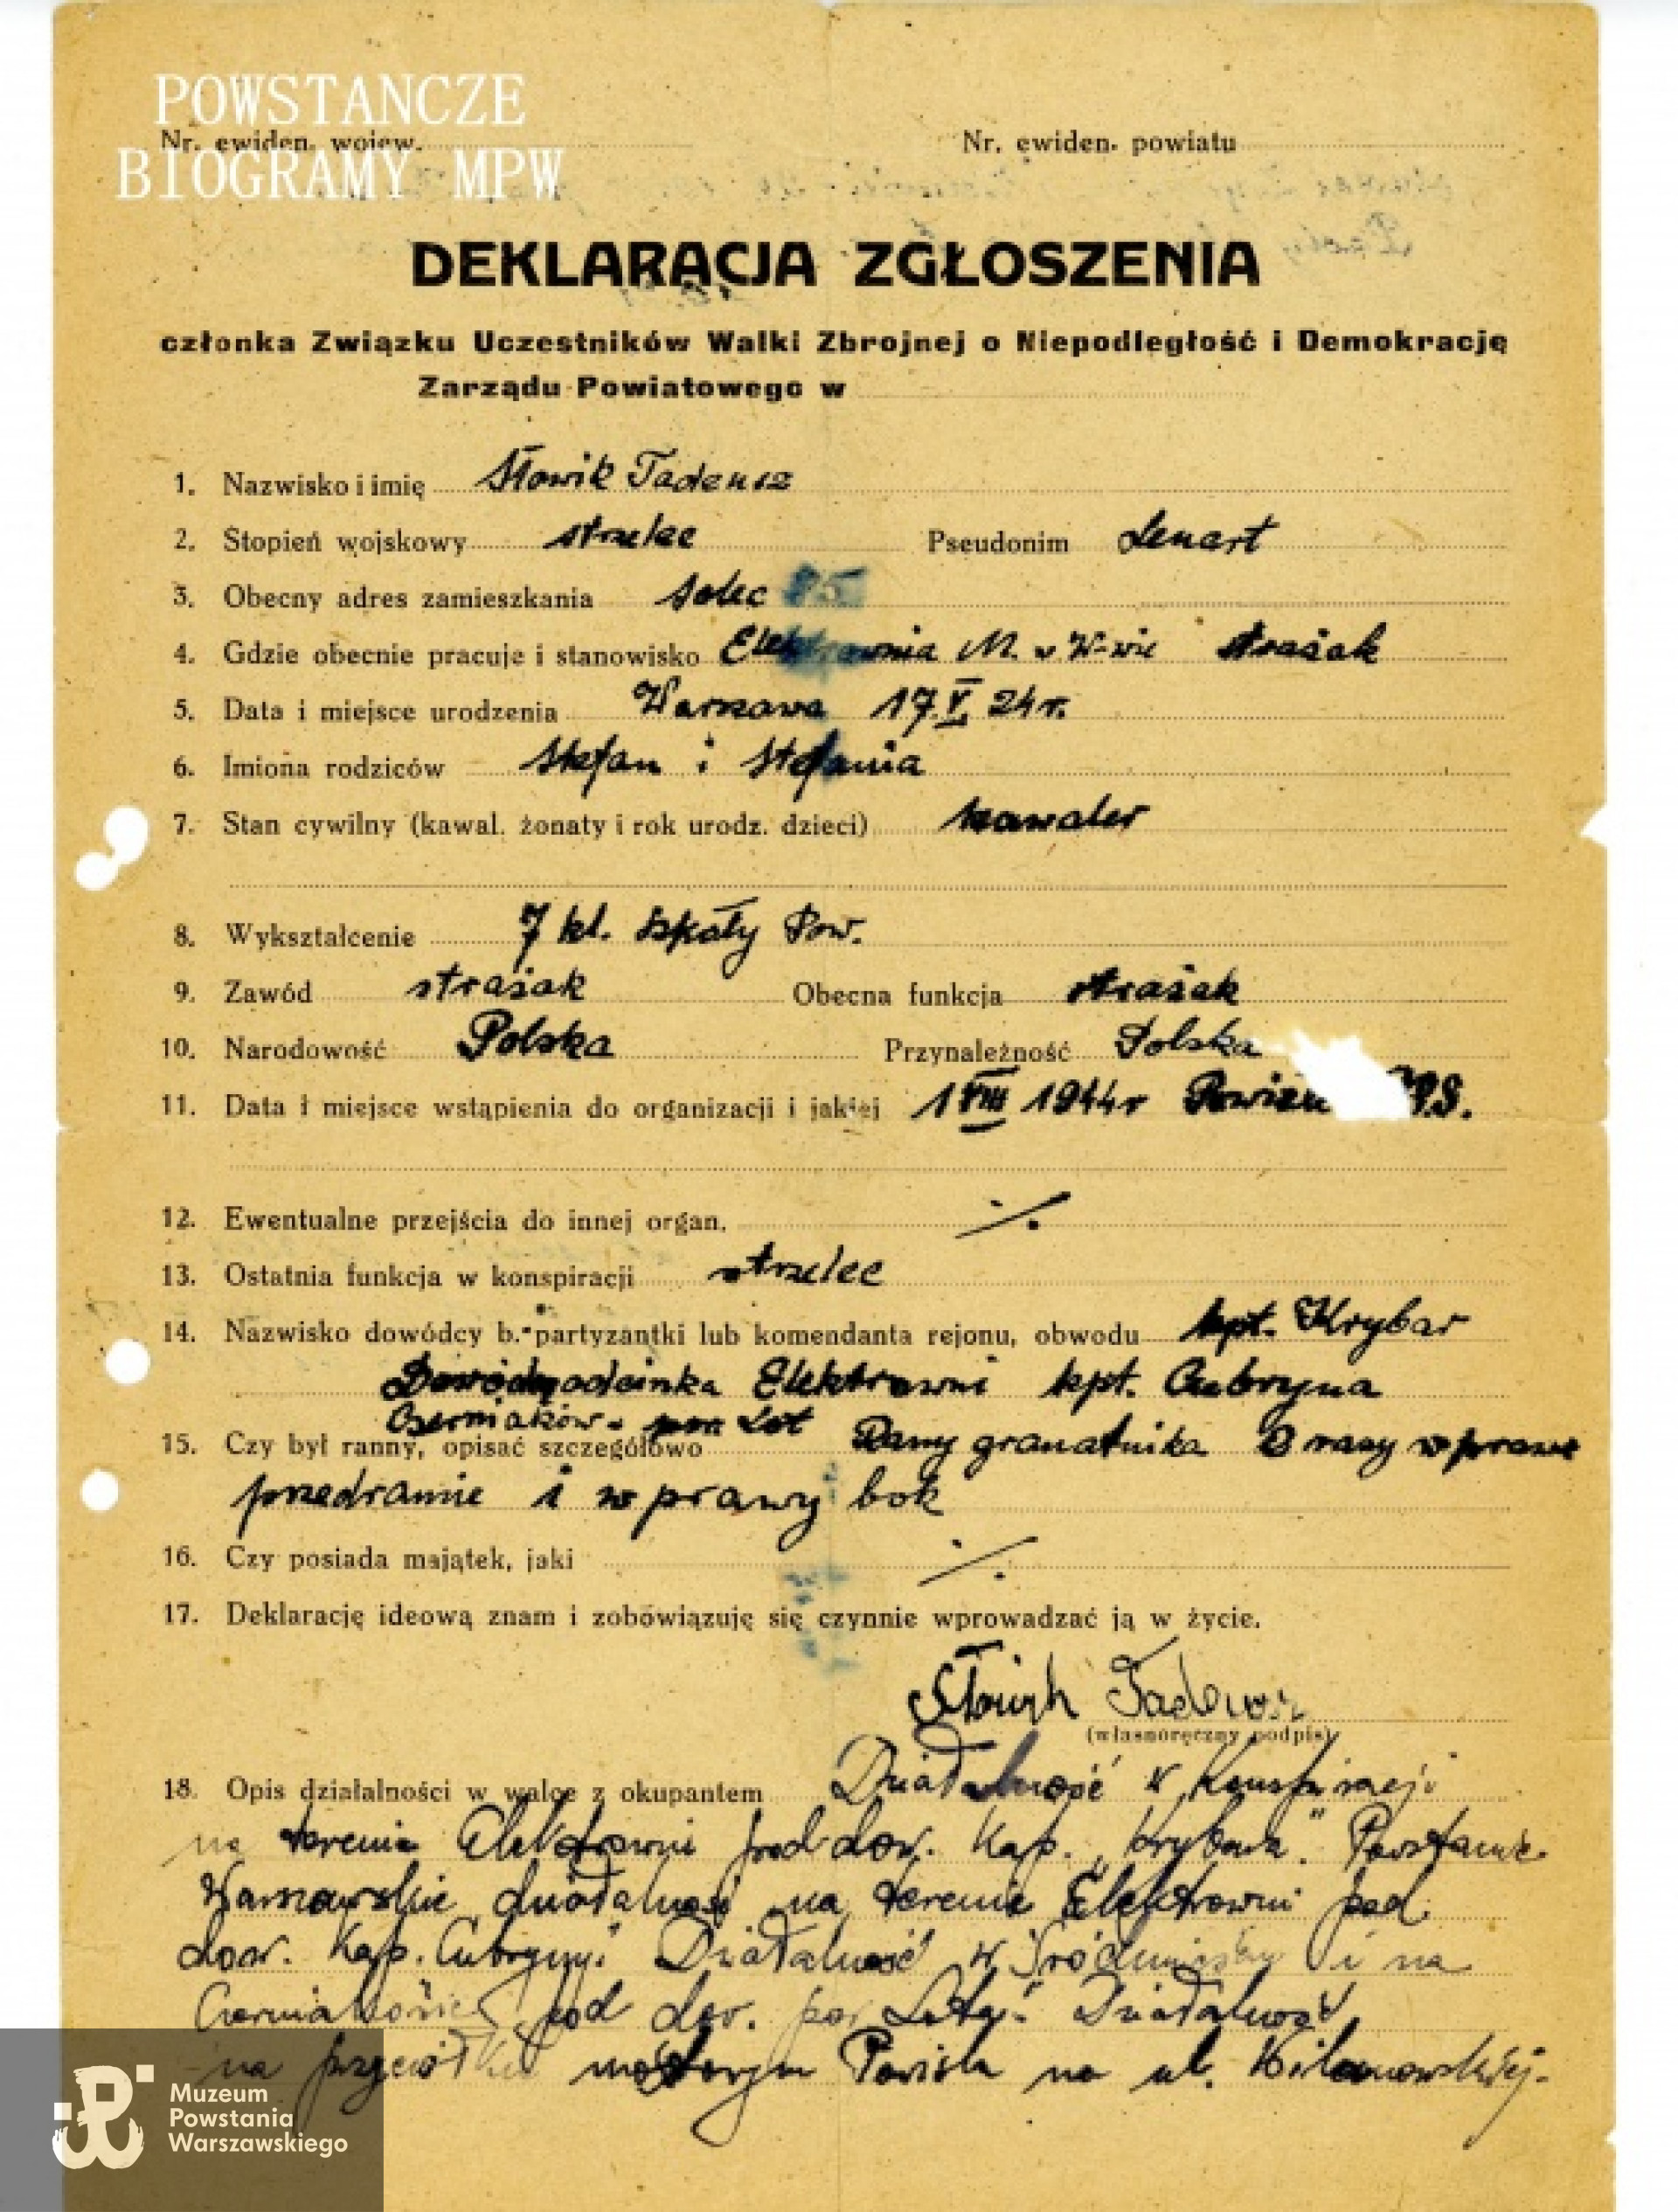 POWSTANCZE
BIOGRAMY MPW
Nr. ewiden. wojew. Nr. ewiden. powiatu
DEKLARACJA ZGŁOSZENIA
członka Związku Uczestników Walki Zbrojnej o Niepodległość i Demokrację
Zarządu Powiatowego w
1. Nazwisko i imię Słowik Tadeusz
2. Stopień wojskowy strzelec Pseudonim Lenart
3. Obecny adres zamieszkania Solec 85
4. Gdzie obecnie pracuje i stanowisko Elektrownia M. w W-wie strażak
5. Data i miejsce urodzenia Warszawa 17.V. 24r.
6. Imiona rodziców Stefan i Stefania
7. Stan cywilny (kawal. żonaty i rok urodz. dzieci) kawaler
8. Wykształcenie 7 kl. Szkoły Pow.
9. Zawód strażak Obecna funkcja strażak
10. Narodowość Polska Przynależność Polska
11. Data i miejsce wstąpienia do organizacji i jakiej 1 VIII 1944r
12. Ewentualne przejścia do innej organ.
13. Ostatnia funkcja w konspiracji strzelec
14. Nazwisko dowódcy b. partyzantki lub komendanta rejonu, obwodu kpt. Krybar
Dowódcy odcinka Elektrowni kpt. Cubryna
Czerniaków - por. Lot
15. Czy był ranny, opisać szczegółowo Ranny granatnika 2 razy w prawe
przedramie i w prawy bok
16. Czy posiada majątek, jaki
17. Deklarację ideową znam i zobowiązuję się czynnie wprowadzać ją w życie.
Słowik Tadeusz
(własnoręczny podpis)
18. Opis działalności w walce z okupantem Działalność w Konspiracji
na terenie Elektrowni pod dow. Kap. „Krybara" Powstanie
Warszawskie działalność na terenie Elektrowni pod
dow. Kap. Cubryny. Działalność w Śródmieściu i na
Czerniakowie pod dow. por. Działalność
na Powiśla na ul. Wilanowskiej.
Muzeum
Powstania
Warszawskiego